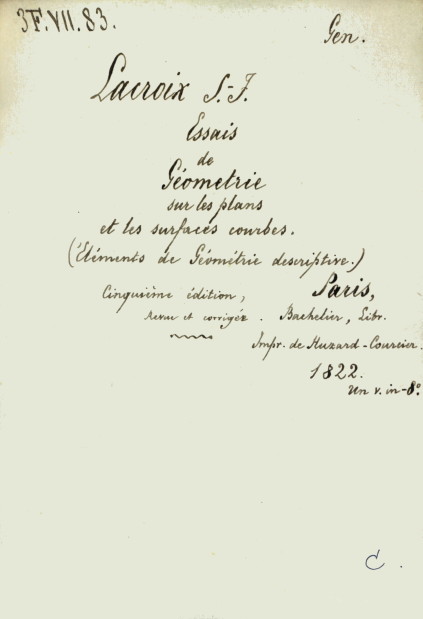 3F.VII.83.
Gen.
Lacroix S.-F.
Essais
de
Géometrie
sur les plans
et les surfaces courbes.
(Eléments de Géométrie descriptive.)
Cinquième édition,
Revue et corrigée.
Paris,
Bachelier, Libr.
Impr. de Huzard-Courcier.
1822.
Un v. in-8º.
C.